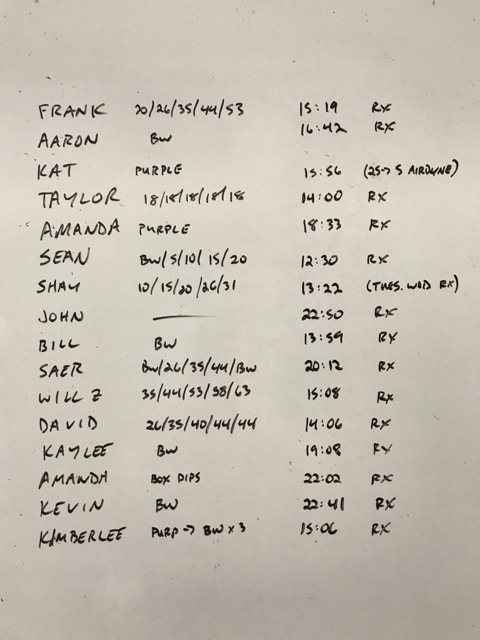 FRANK 20/26/35/44/53 15:19 RX
AARON BW 16:42 RX
KAT PURPLE 15:56 (25→ 5 AIRDYNE)
TAYLOR 18/18/18/18/18 14:00 RX
AMANDA PURPLE 18:33 RX
SEAN BW/5/10/15/20 12:30 RX
SHAY 10/15/20/26/31 13:22 (TUES. WOD RX)
JOHN — 22:50 RX
BILL BW 13:59 RX
SAER BW/26/35/44/BW 20:12 RX
WILL Z 35/44/53/58/63 15:08 RX
DAVID 26/35/40/44/44 14:06 RX
KAYLEE BW 19:08 RX
AMANDA BOX DIPS 22:02 RX
KEVIN BW 22:41 RX
KIMBERLEE PURP → BW x 3 15:06 RX